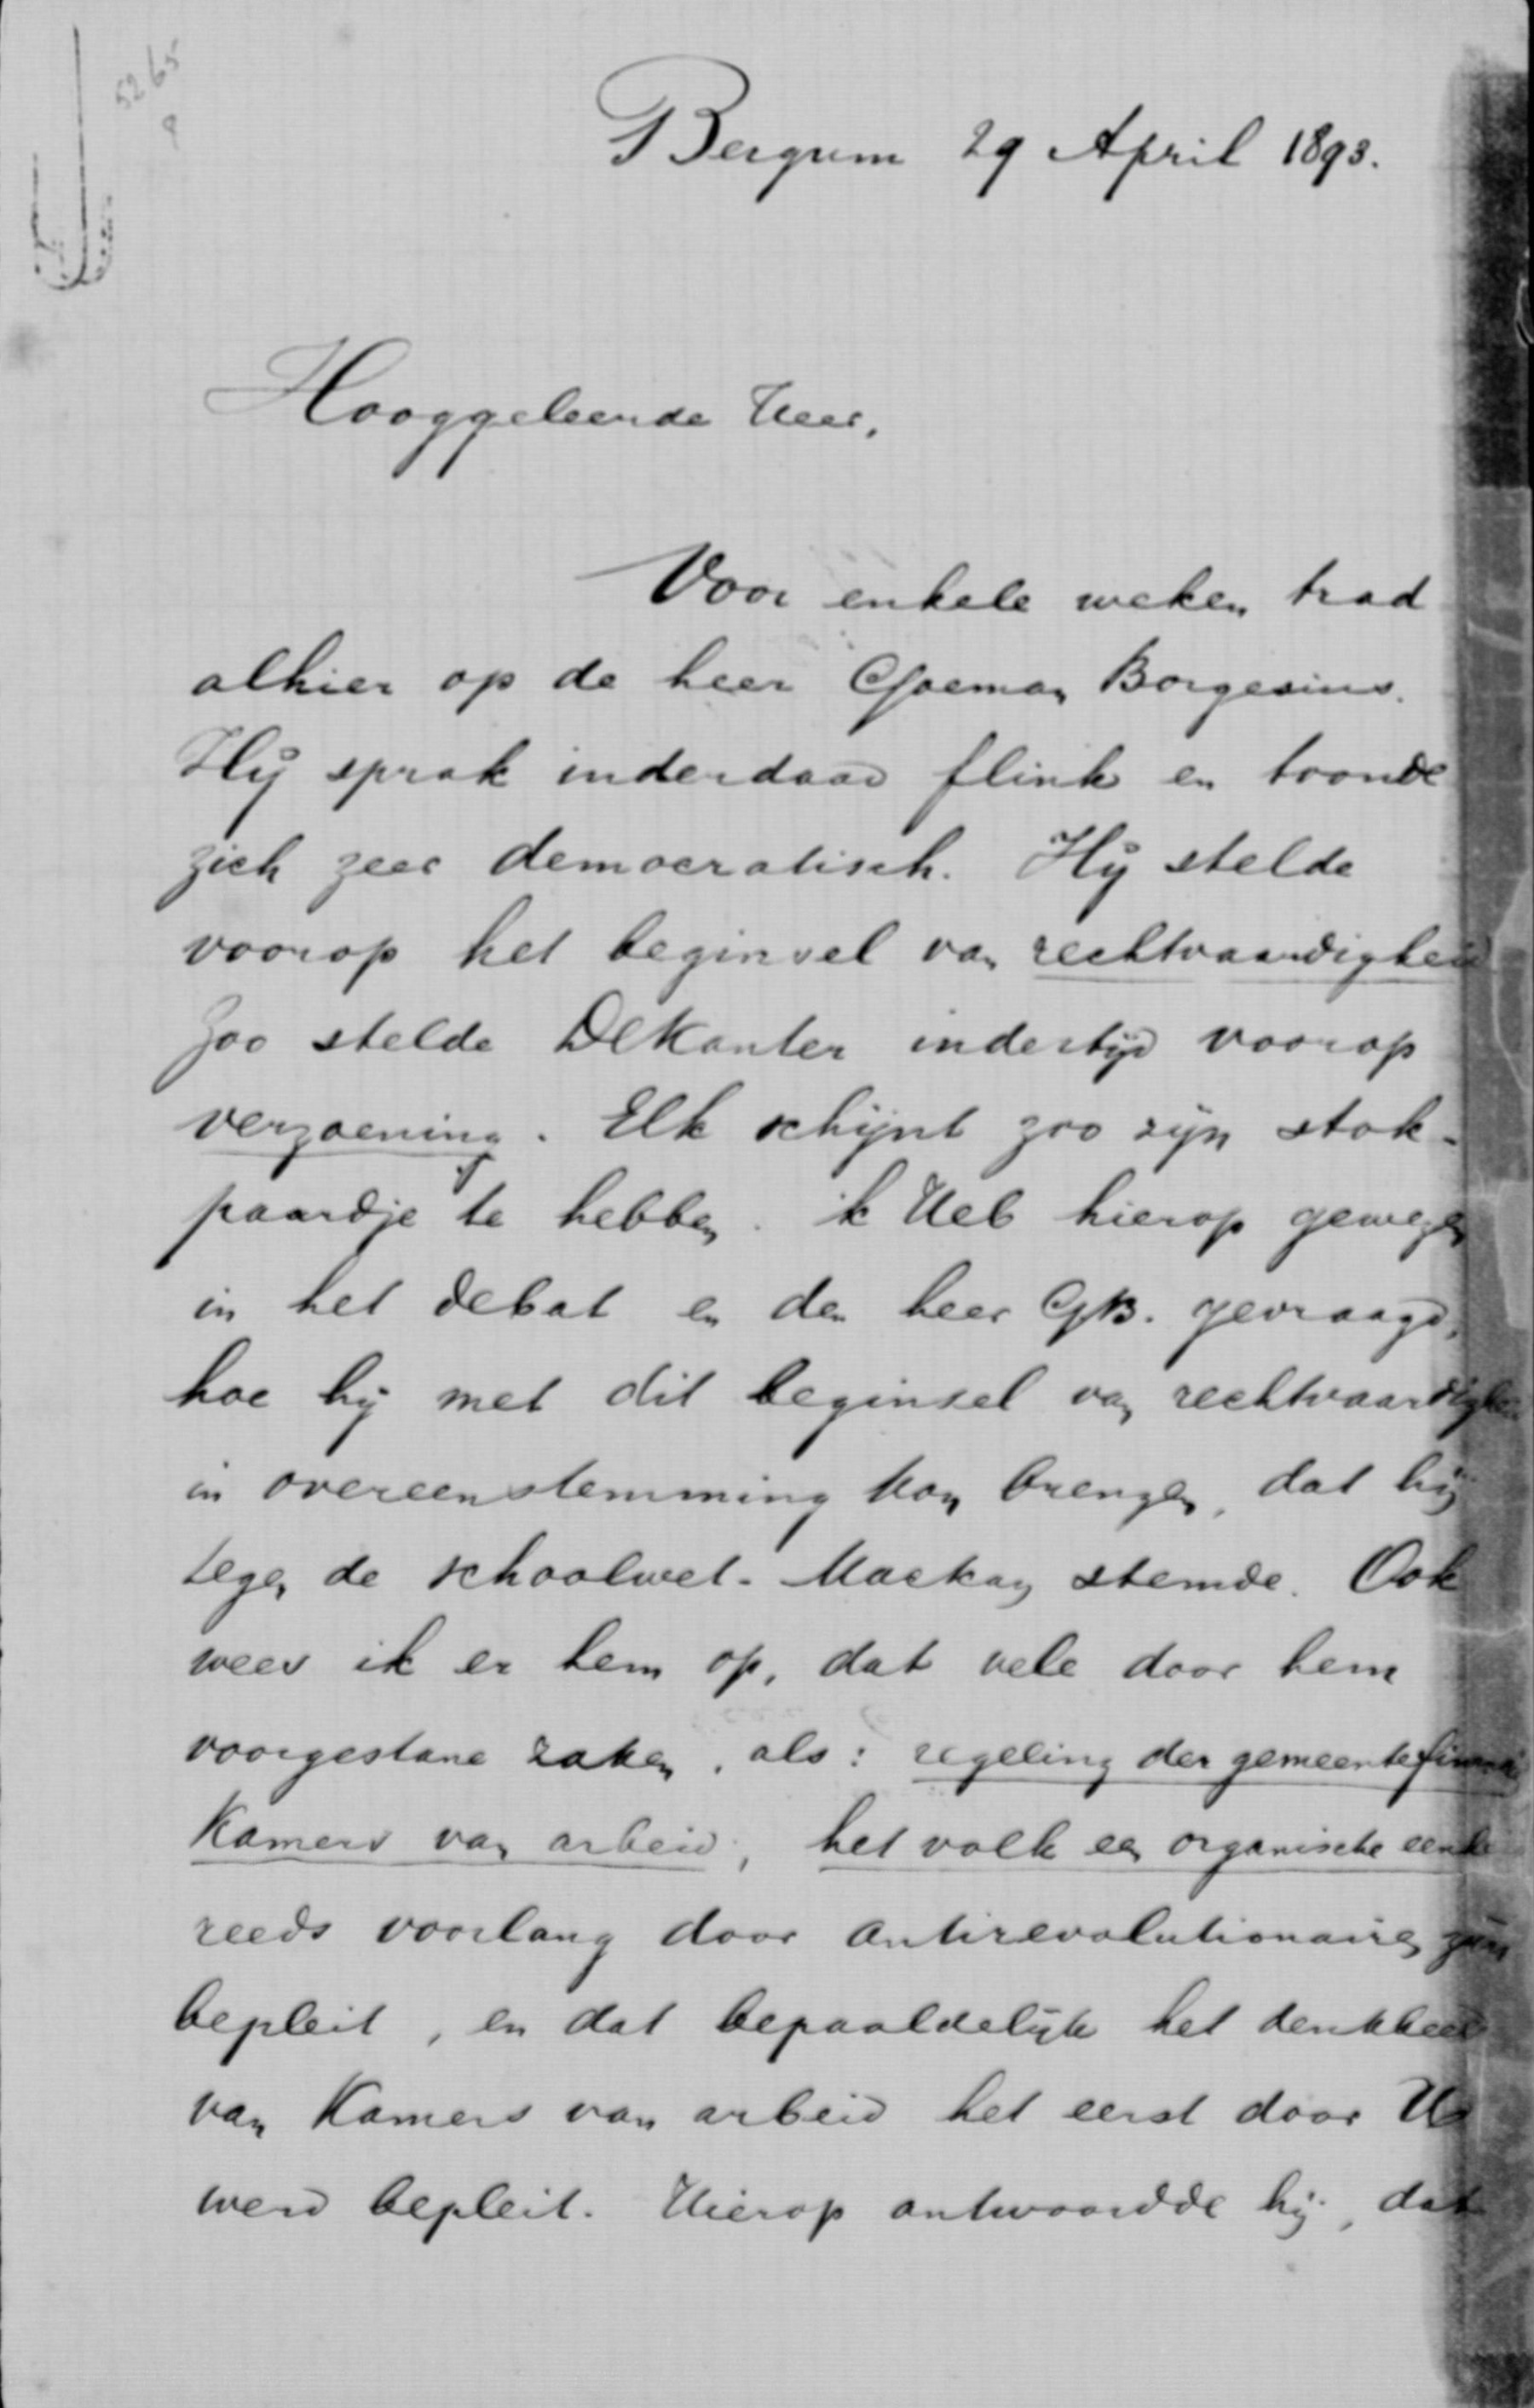 5265
Bergum 29 April 1893.
Hooggeleerde Heer,
Voor enkele weken trad
alhier op de heer Goeman Borgesius.
Hij sprak inderdaad flink en toonde
zich zeer democratisch. Hij stelde
voorop het beginsel van rechtvaardigheid
Zoo stelde DeKanter indertijd voorop
verzoening. Elk schijnt zoo zijn stok-
paardje te hebben. ik Heb hierop gewezen
in het debat en den heer GB. gevraagd,
hoe hij met dit beginsel van rechtvaardigheid
in overeenstemming kon brengen, dat hij
tegen de schoolwet-Mackay stemde. Ook
wees ik er hem op, dat vele door hem
voorgestane zaken, als: regeling der gemeentefinanc
Kamers van arbeid, het volk een organische eenhe
reeds voorlang door antirevolutionairen zijn
bepleit, en dat bepaaldelijk het denkbeeld
van Kamers van arbeid het eerst door U
werd bepleit. Hierop antwoordde hij, dat